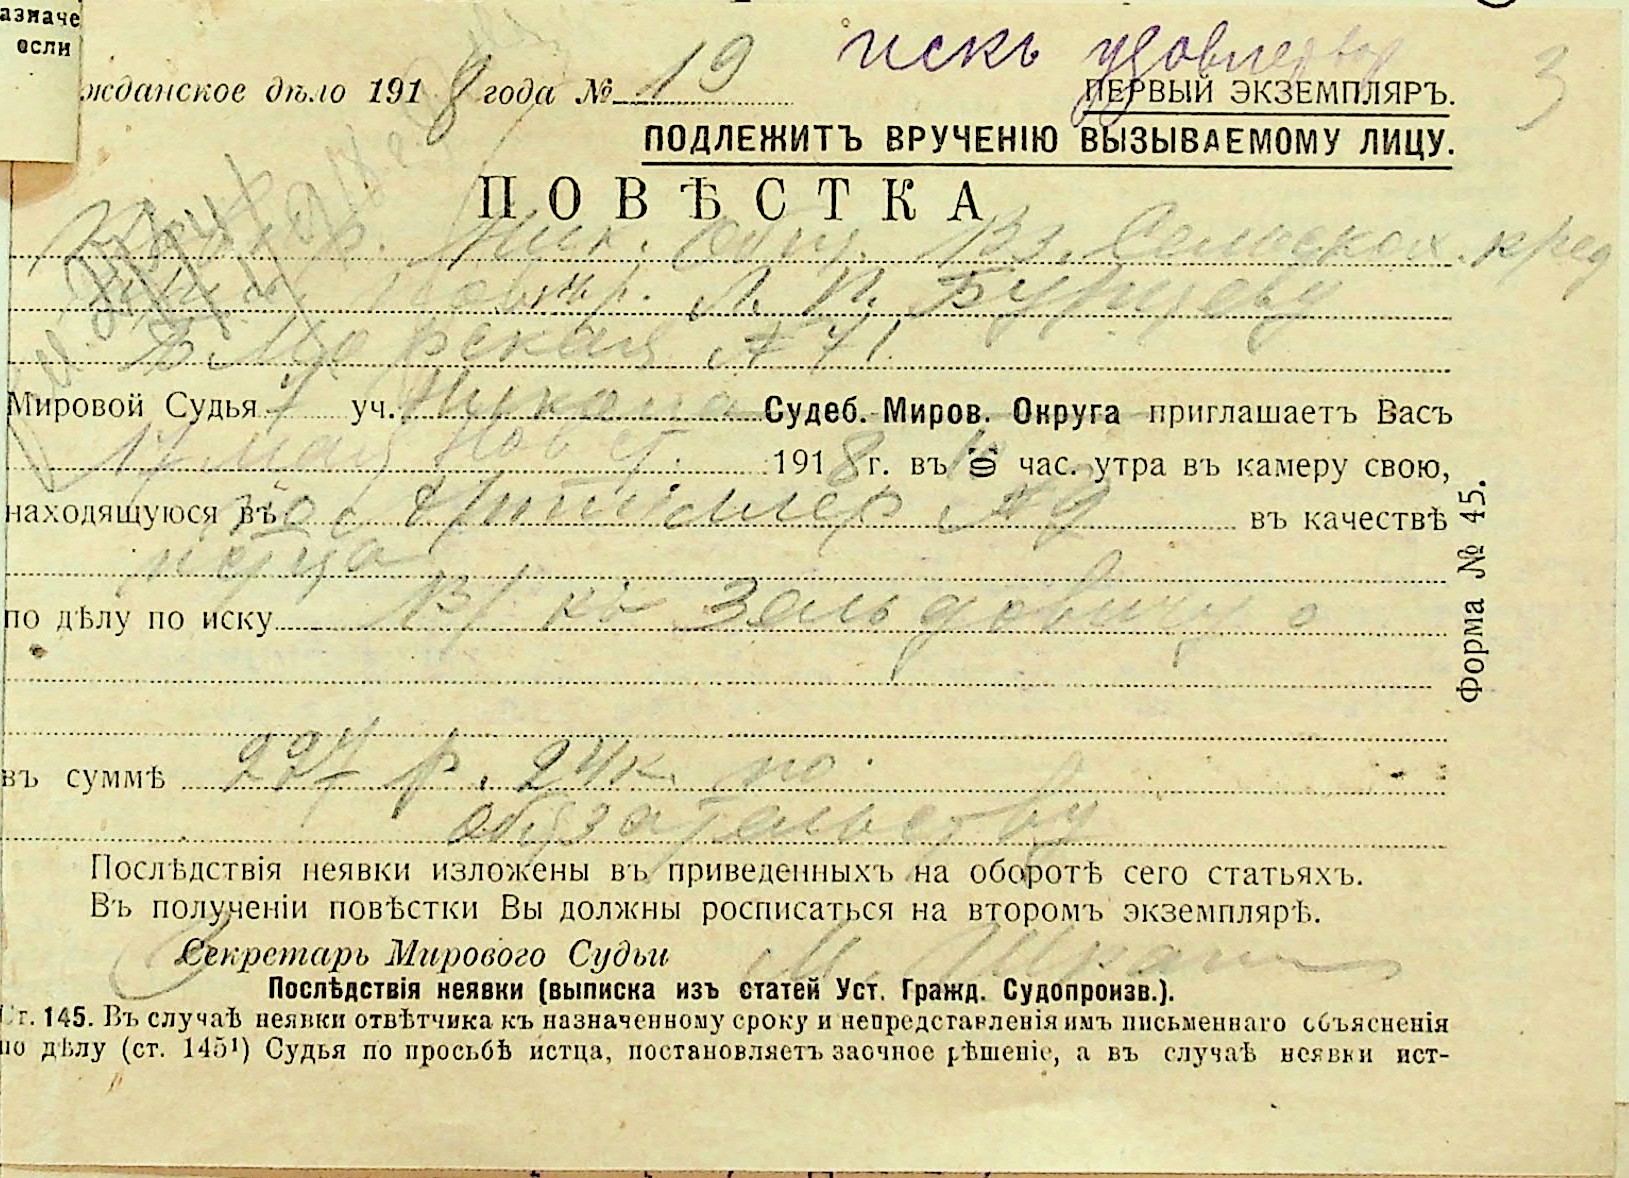 азначе
если
искъ удовлетвор
3
жданское дѣло 1918 года № 19
ПЕРВЫЙ ЭКЗЕМПЛЯРЪ.
ПОДЛЕЖИТЪ ВРУЧЕНІЮ ВЫЗЫВАЕМОМУ ЛИЦУ.
ПОВѢСТКА
Ник. Общ. Вз. Сельскох. кред
Повѣр. Л. П. Бурцеву
Б Морская № 71.
Мировой Судья 1 уч. Никола Судеб. Миров. Округа приглашаетъ Васъ
17 мая нов ст. 1918 г. въ 10 час. утра въ камеру свою,
находящуюся въ по № 9 въ качествѣ
истца
по дѣлу по иску В/ къ Зельдовичу о
въ суммѣ 227 р. 24 к. по
обязательству
Послѣдствія неявки изложены въ приведенныхъ на оборотѣ сего статьяхъ.
Въ полученіи повѣстки Вы должны росписаться на второмъ экземплярѣ.
Секретарь Мирового Судьи
Послѣдствія неявки (выписка изъ статей Уст. Гражд. Судопроизв.).
Ст. 145. Въ случаѣ неявки отвѣтчика къ назначенному сроку и непредставленія имъ письменнаго объясненія
по дѣлу (ст. 145¹) Судья по просьбѣ истца, постановляетъ заочное рѣшеніе, а въ случаѣ неявки ист-
Форма № 45.